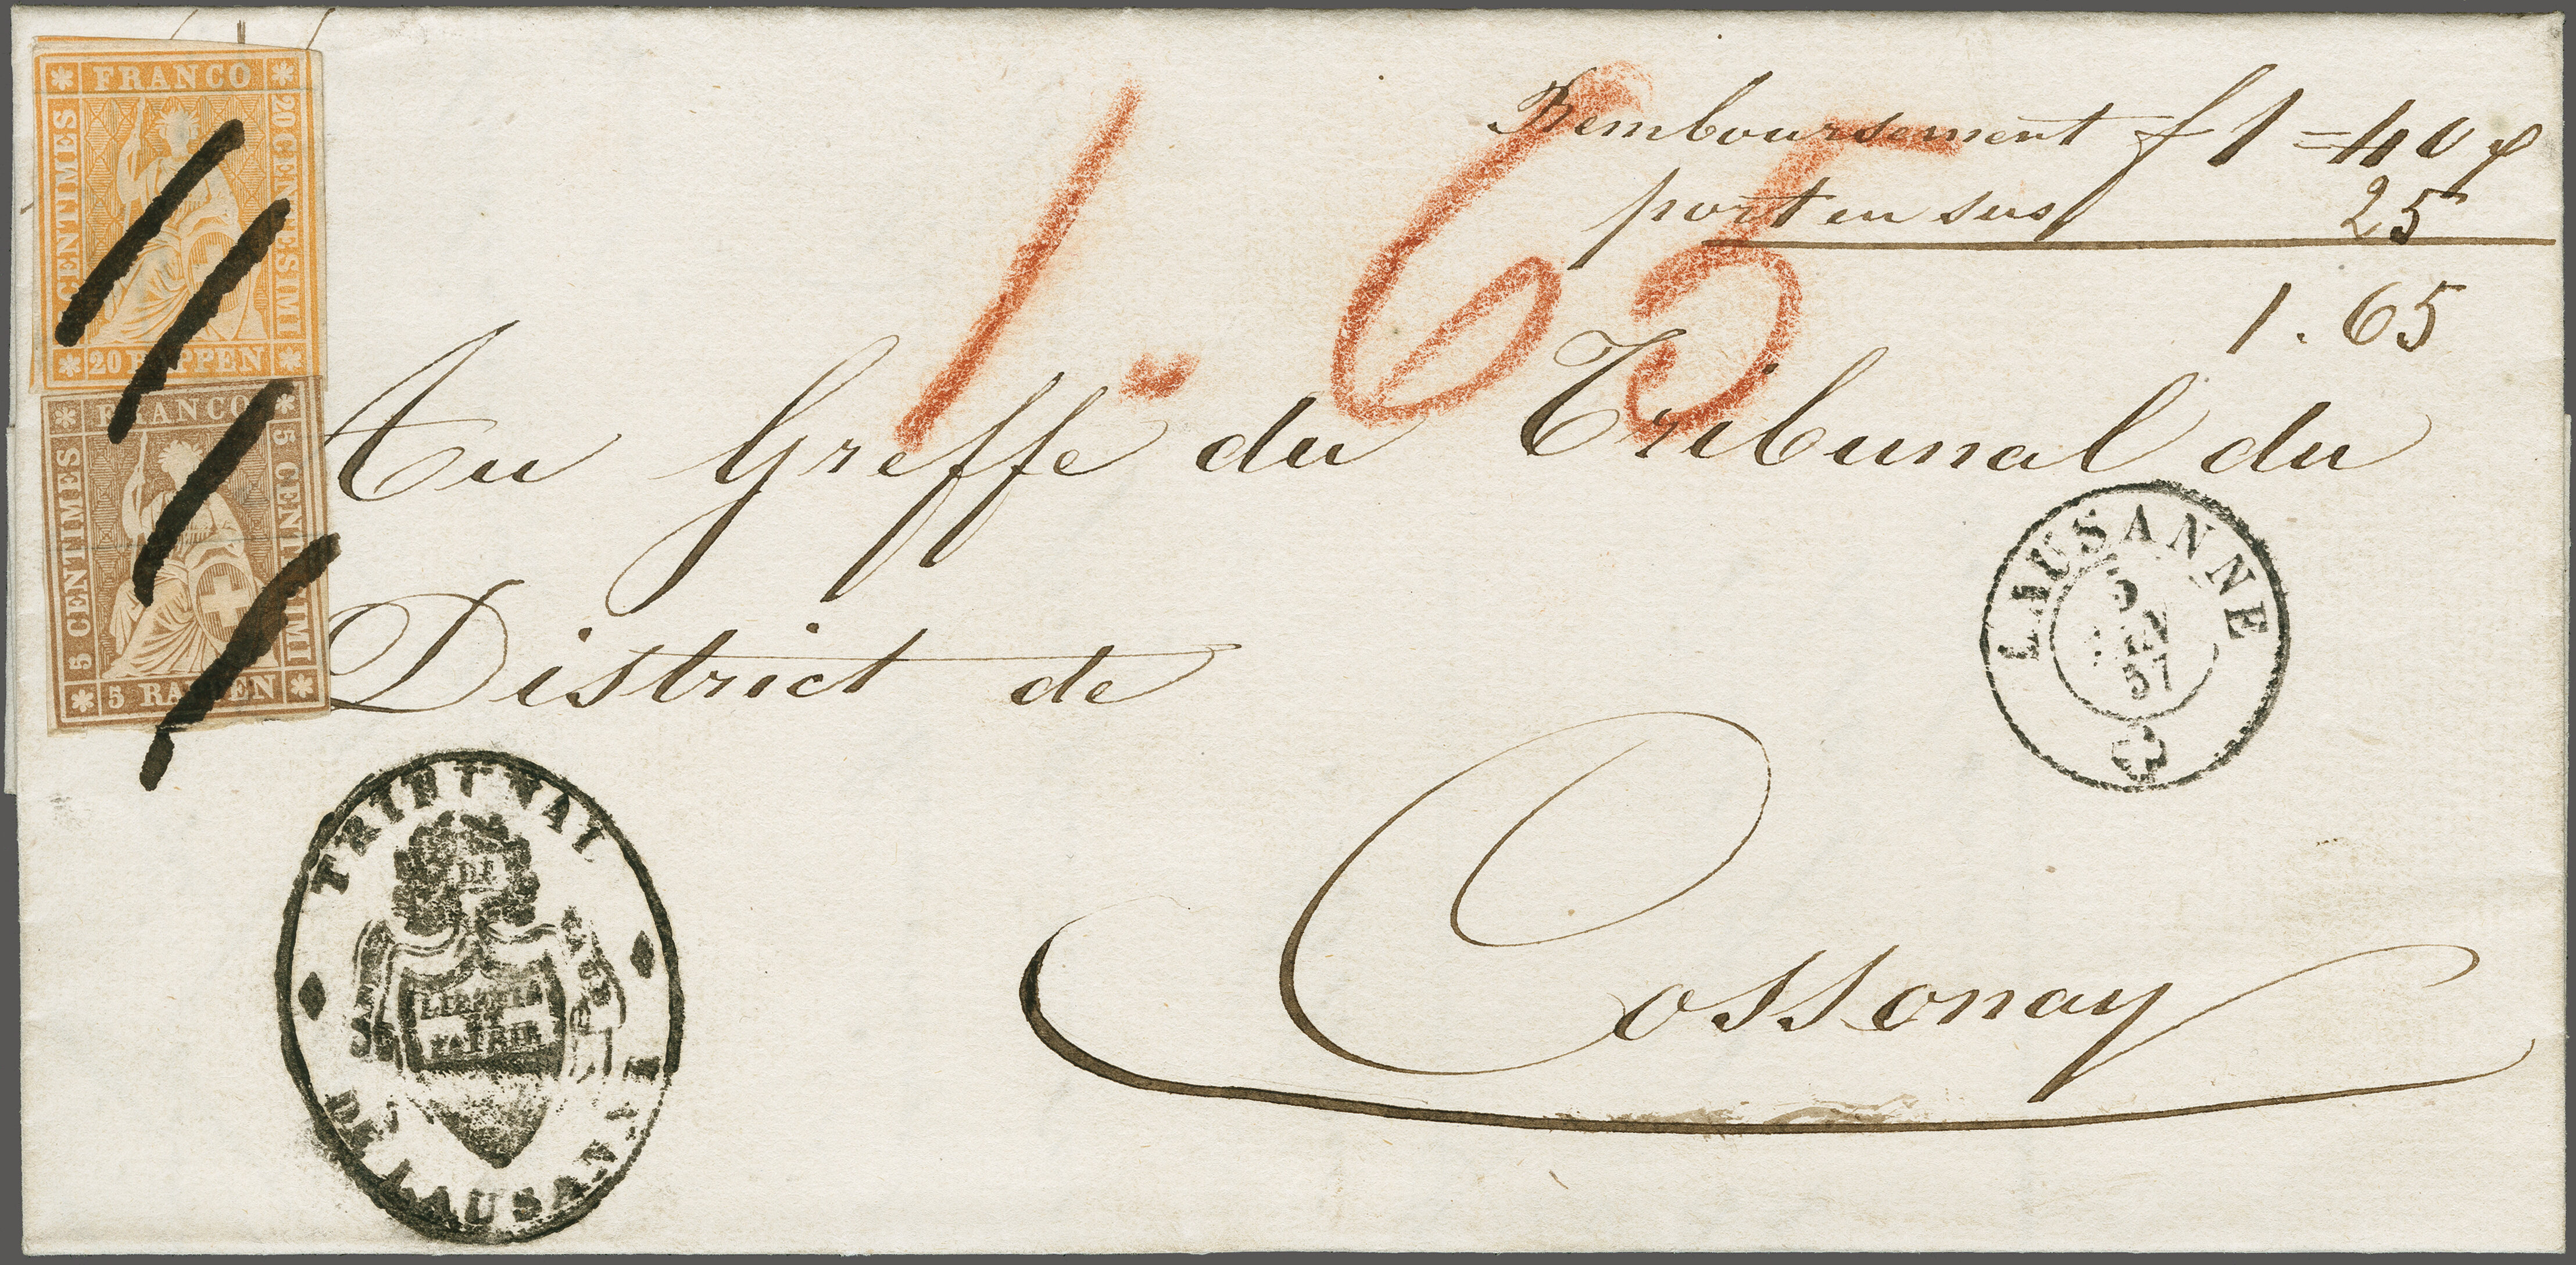 FRANCO
CENTIMES
20 CENTESIMI
20 RAPPEN
FRANCO
5 CENTIMES
5 CENTESIMI
5 RAPPEN
Remboursement f 1 = 40
port en sus 25
1.65
1.65
Au Greffe du Tribunal du
District de
Cossonay
LAUSANNE
5
57
TRIBUNAL
DE
LIBERTÉ
ET
PATRIE
DE LAUSANNE